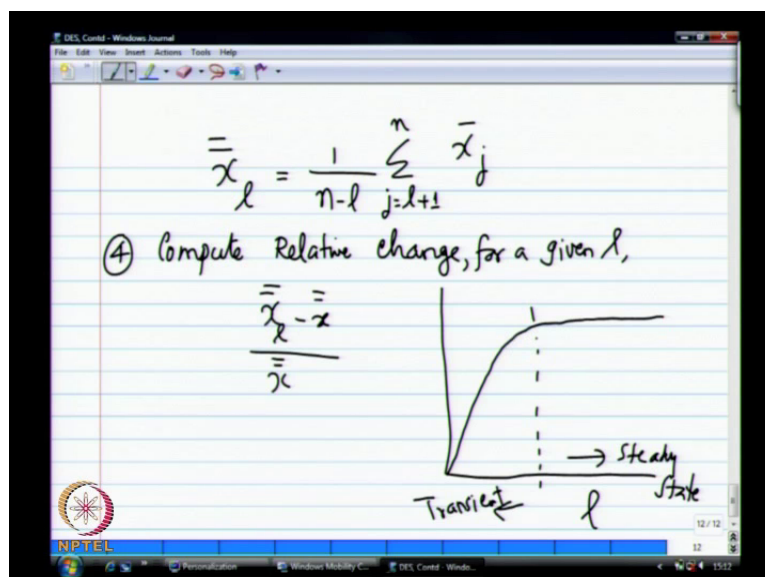 DES, Contd - Windows Journal
File Edit View Insert Actions Tools Help
x̿_l = 1/(n-l) Σ_{j=l+1}^{n} x̄_j
④ Compute Relative change, for a given l,
(x̿_l - x̿)/x̿
→ Steady
State
Transient ←
l
NPTEL
12 / 12
12
Personalization
Windows Mobility C...
DES, Contd - Windo...
15:12